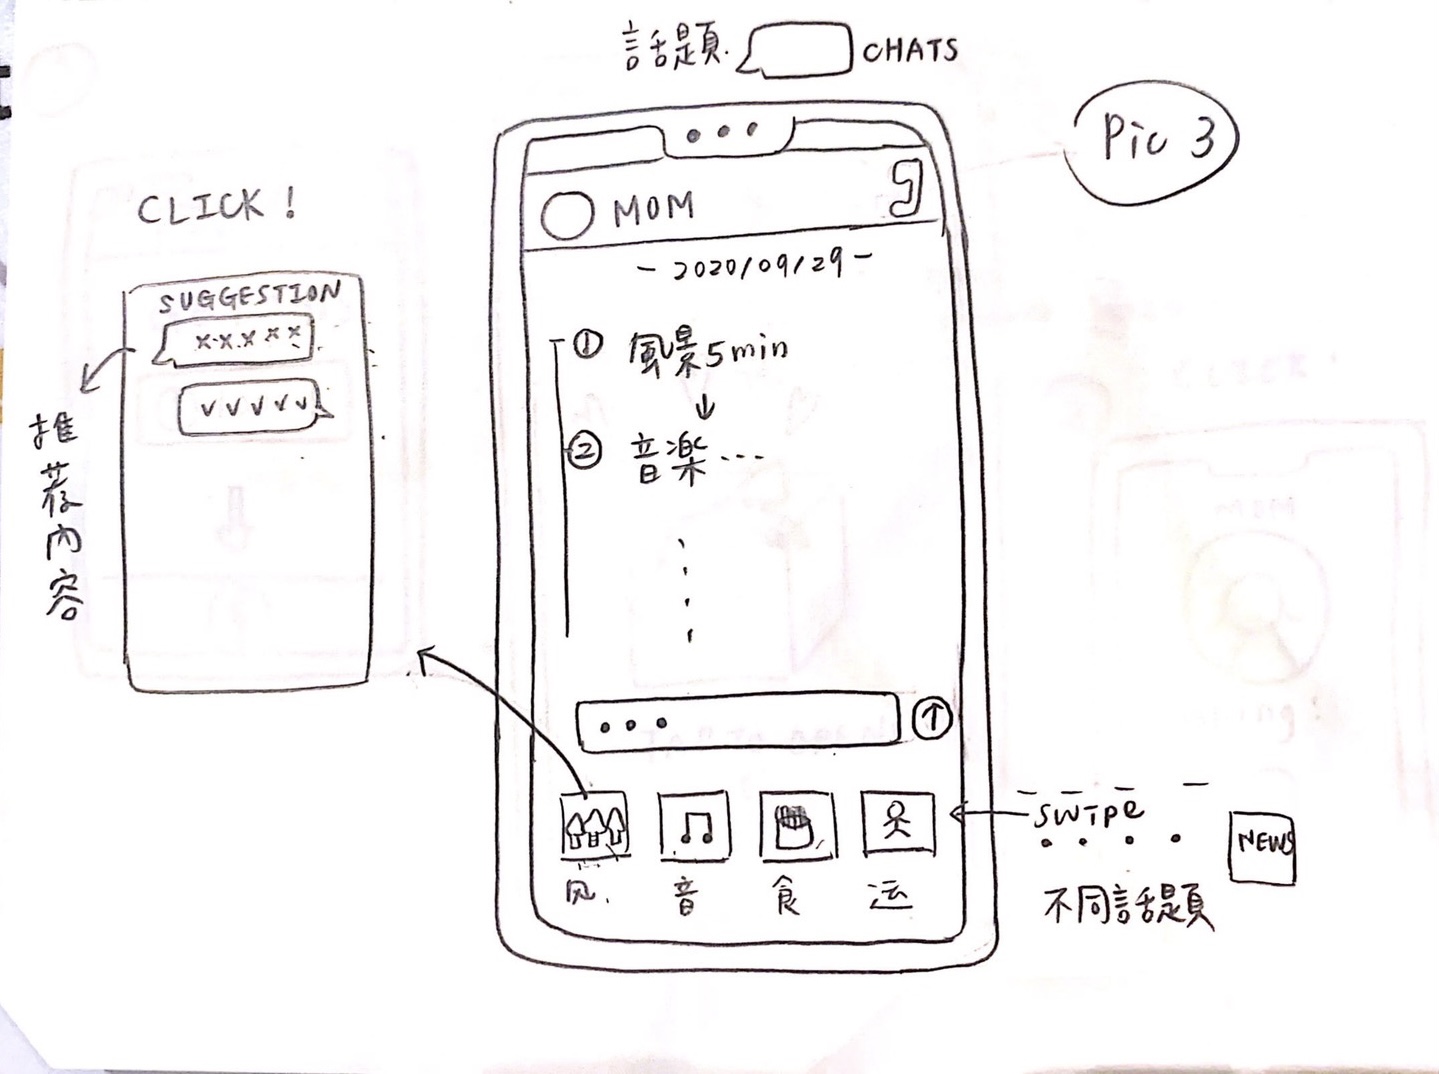 話題. CHATS
Pic 3
CLICK !
SUGGESTION
x x x x x
v v v v v
推荐內容
MOM
- 2020/09/29 -
① 風景5min
↓
② 音楽...
風. 音 食 运
swipe
NEWS
不同話題